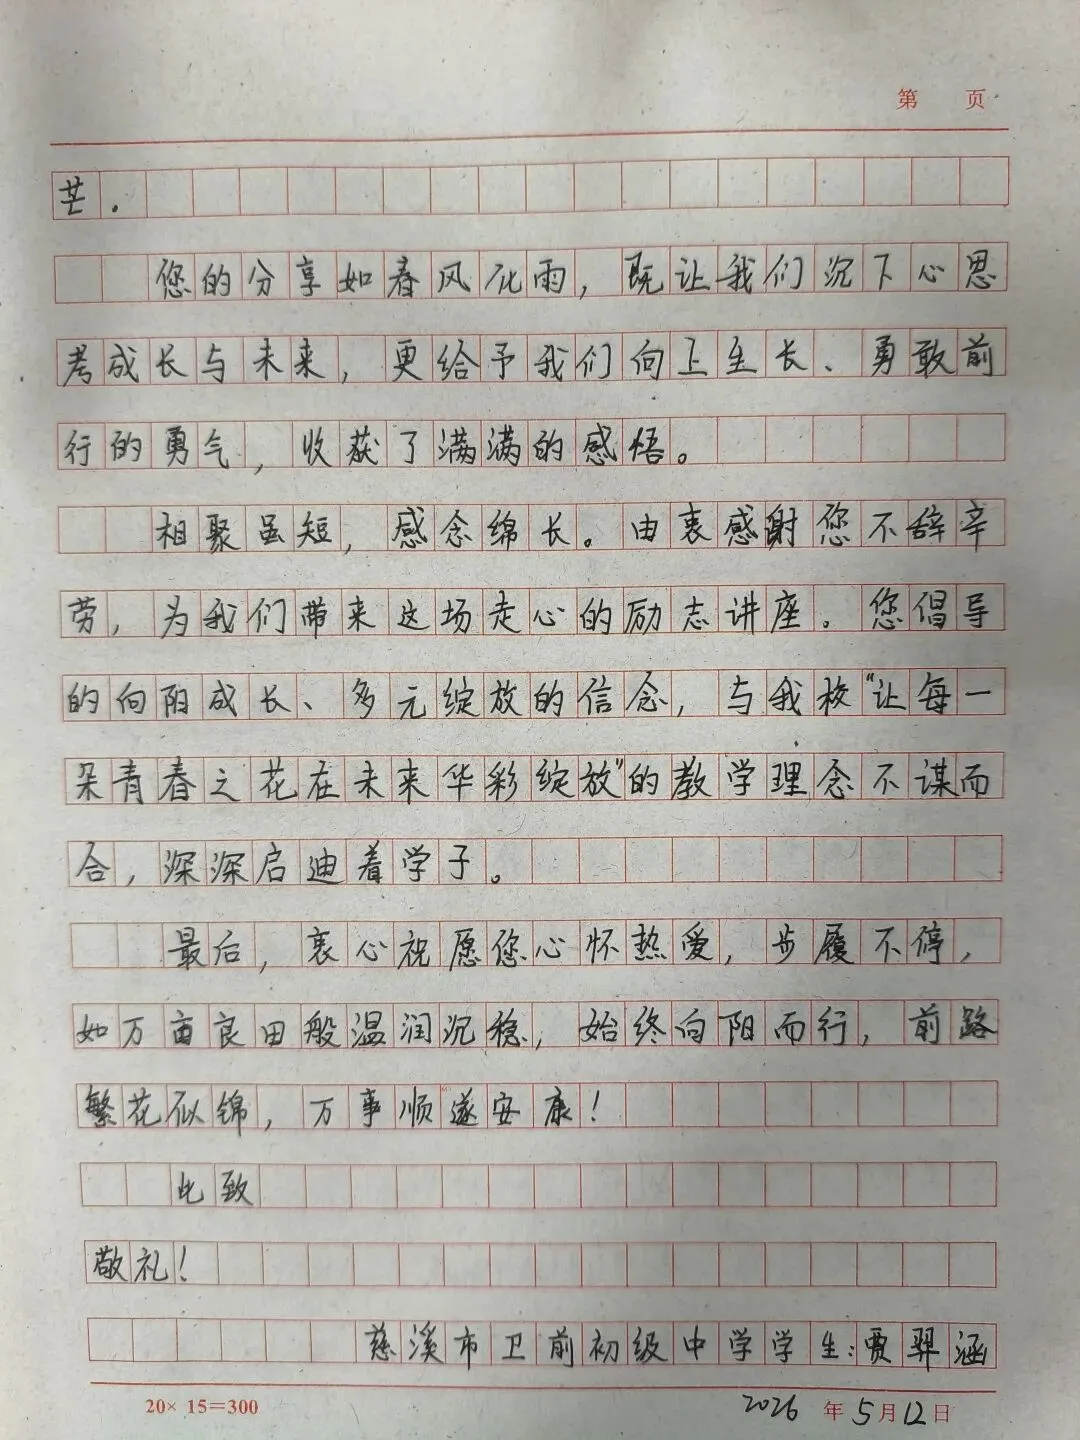 第 页
芒。
您的分享如春风化雨，既让我们沉下心思
考成长与未来，更给予我们向上生长、勇敢前
行的勇气，收获了满满的感悟。
相聚虽短，感念绵长。由衷感谢您不辞辛
劳，为我们带来这场走心的励志讲座。您倡导
的向阳成长、多元绽放的信念，与我校“让每一
朵青春之花在未来华彩绽放”的教学理念不谋而
合，深深启迪着学子。
最后，衷心祝愿您心怀热爱，步履不停，
如万亩良田般温润沉稳，始终向阳而行，前路
繁花似锦，万事顺遂安康！
此致
敬礼！
慈溪市卫前初级中学学生：贾羿涵
20×15=300 2026年5月12日